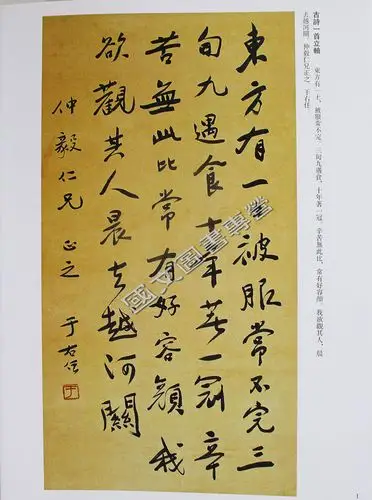 古詩一首立軸
東方有一士,被服常不完,三旬九遇食,十年著一冠,辛苦無此比,常有好容顏,我欲觀其人,晨
去越河關。仲毅仁兄正之,于右任。
東方有一士被服常不完三
旬九遇食十年著一冠辛
苦無此比常有好容顏我
欲觀其人晨去越河關
仲毅仁兄 正之 于右任
國文圖書專營
1